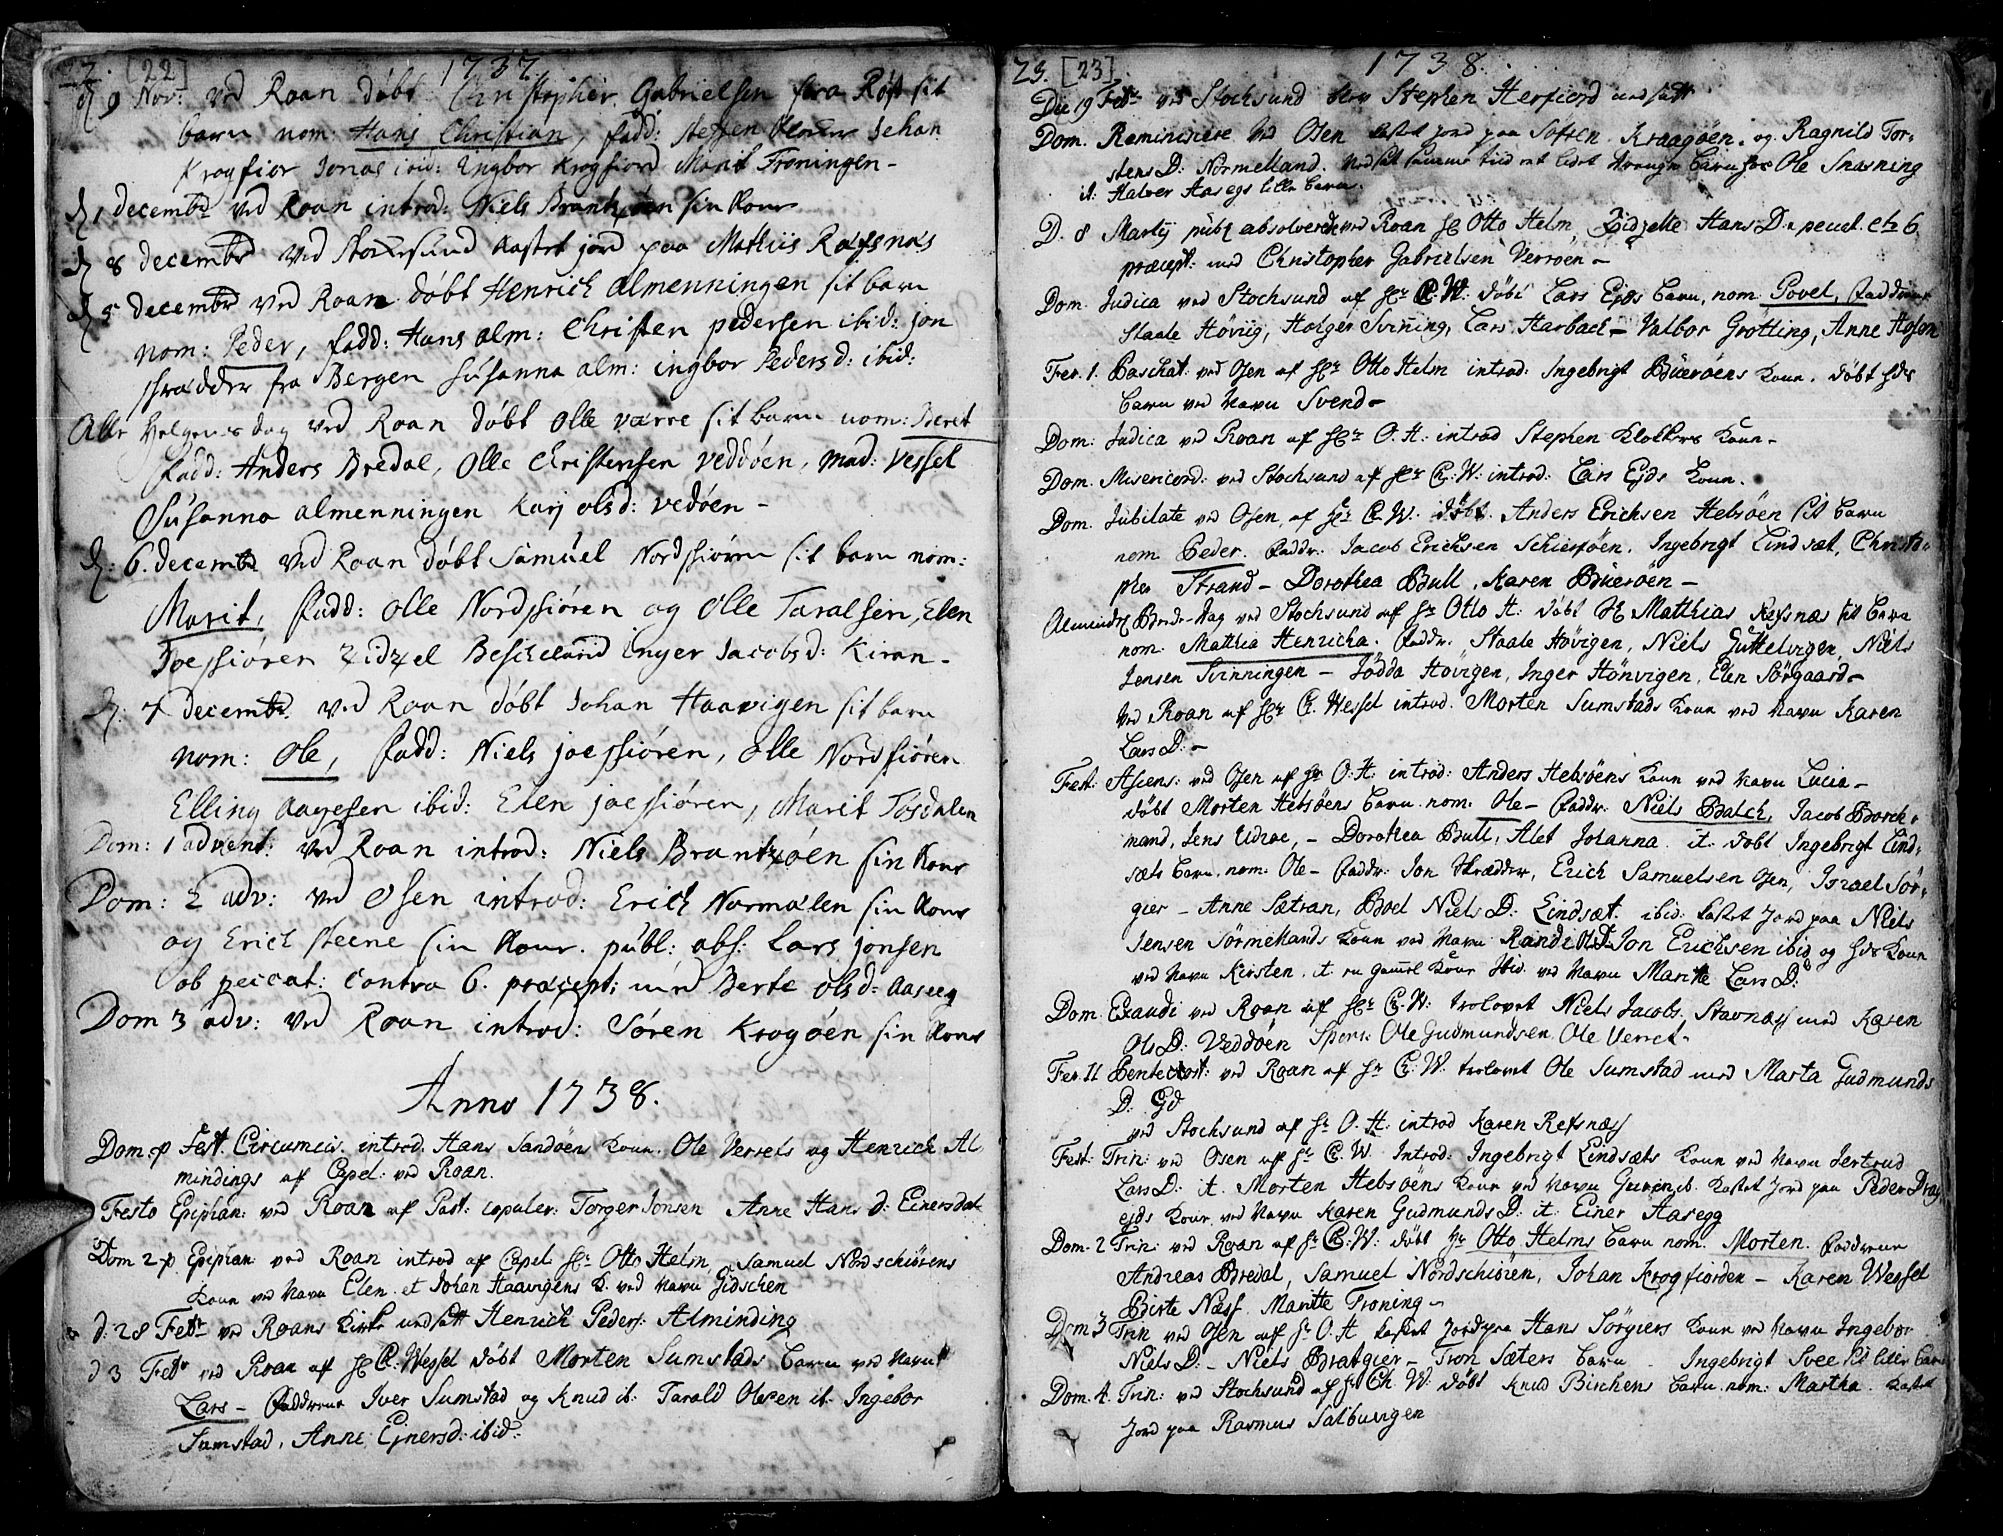 22. [22] 1737
d. 9 Nov: ved Roan døbt Christopher Gabrielsen fra Røst sit
barn nom: Hans Christian, fadd: steffen Klocker Johan
Krogfior Jonas ibid: Ingbor Krogfiord Marit Froningen -
d. 1 decembr ved Roan introd: Niels Brantzøen sin Kone
d. 8 decembr ved Stocksund kastet jord paa Mathiis Refsnæs
d. 5 decembr ved Roan døbt Henrich almenningen sit barn
nom: Peder, fadd: Hans alm: Christen pedersen ibid: jon
schrædder fra Bergen Susanna alm: ingbor Peders d: ibid:
Alle Helgenes dag ved Roan døbt olle værre sit barn nom: Berit
fadd: Anders Bredal, Olle Christensen veddøen, mad: Vessel
Susanna almenningen Karj olsd: vedøen -
d. 6. decembr ved Roan døbt Samuel Nordssiøren sit barn nom:
Marit, fadd: olle Nordssiøren og olle Taralsen, Elen
Joessiøren Zidzel Bescheland Inger Jacobsd: Kiran -
d: 7 decembr. ved Roan døbt Johan Haavigen sit barn
nom: Ole, fadd: Niels joessiøren, olle Nordssiøren
Elling aagesen ibid: Elen joessiøren, Marit Tøsdalen
Dom: 1 advent: ved Roan introd: Niels Brantzøen sin Kone
Dom: 2 adv: ved Osen introd: Erich Normælen sin Kone
og Erich steene sin Kone. publ: abs: Lars jonsen
ob peccat: contra 6. præcept: med Berte olsd: Aasegg
Dom 3 adv: ved Roan introd: Søren Krogøen sin Kone
Anno 1738.
Dom. p Fest. Circumcis. introd. Hans Sandøens Kone. Ole Verrets og Henrich Al
mindings af Capel: ved Roan.
Festo Epiphan: ved Roan af Past: copuler: Torger Jonsen Anne Hans d: Einersdal
Dom 2 p. Epiphan ved Roan introd af Capel Hr Otto Helm, Samuel Nordschiørens
Kone ved Navn Elen. et Johan Haavigens K. ved Navn Zidschen
d: 28 Febr ved Roans Kirke nedsatt Henrich Peders: Alminding
d 3 Febr ved Roan af Hr C. Wessel døbt Morten Sumstads barn ved Navn
Lars - Fadderne Iver Sumstad og Knud it. Tarald Olesen it. Ingebor
Sumstad, Anne Ejnersd: ibid:
23. [23] 1738.
Die 19 Febr ved Stochsund blev Stephen Herfiord nedsatt
Dom. Reminiscere ved Osen kastet jord paa Søfren Kraagøen. og Ragnild Tor-
stens D: Nørmelland. Nedsat samme tiid et lidet Drenge barn hos Ole Snasning
it: Halvor Aasegs lille barn.
D. 8 Martij publ absolverede ved Roan Hr Otto Helm Zidzelle Hans D. peccat. ctr 6
præcept: med Christopher Gabrielsen Verrøen -
Dom Judica ved Stochsund af Hr C. W: døbt Lars Ejds barn, nom Povel, Fadderne
Staale Høviig, Holger Svinning, Lars Harbach - Valbor Grøtting, Anne Hofsen
Fer. 1. Paschat: ved Osen af Hr Otto Helm introd: Ingebrigt Buerøens Kone. døbt hds
barn ved Navn Svend -
Dom: Judica ved Roan af Hr O. H: introd Stephen Klokkers Kone -
Dom. Misericord: ved Stochsund af Hr C: W: introd: Lars Ejds Kone.
Dom. Jubilate ved Osen af Hr C. W. døbt. Anders Erichsen Hebsøen sit barn
nom. Peder. Faddr. Jacob Erichsen Schierføen, Ingebrigt Lindsæt, Christo-
pher Strand - Dorothea Bull, Karen Buerøen -
Almindel Bede-Dag ved Stochsund af Hr Otto H: døbt Hr Matthias Refsnæs sit barn
nom. Mathia Henricha. Faddr. Staale Høvigen, Niels Guttelvigen, Niels
Jensen Svinningen - Lødda Høvigen, Inger Hønvigen, Elen Sørgaard -
Ved Roan af Hr C. Wessel introd. Morten Sumstads Kone ved Navn Karen
Lars D: -
Fest: Ascens: ved Osen af Hr O. H. introd: Anders Hebsøens Kone ved Navn Lucia -
døbt Morten Hebsøens barn nom. Ole - Faddr. Niels Balch, Jacob Borch-
mand, Jens Vdroe, - Dorothea Bull, Alet Johanna. it. døbt Ingebrigt Lind-
sæts barn, nom: Ole - Faddr: Jon Skrædder, Erich Samuelsen Osen, Israel Sør-
gier - Anne Sætran, Boel Niels D: Lindsæt. ibid: kastet Jord paa Niels
Jensen Sørmellands Kone ved Navn Randi Ols D. Jon Erichsen ibid og hds Kone
ved Navn Kirsten. it. en gammel Kone ibid. ved Navn Maritte Lars D:
Dom. Exaudi ved Roan af Hr C. W: trolovet Niels Jacobs: Stavnæss med Karen
Ols D: Veddøen Spons: Ole Gudmundsen, Ole Verret -
Fer. II Pentecost: ved Roan af Hr C. W. trolovet Ole Sumstad med Marta Gudmunds
D: Ejd
ved Stochsund af Hr O. H. introd Karen Refsnæss
Fest: Trin: ved Osen af Hr C. W. Introd: Ingebrigt Lindsæts Kone ved Navn Jertrud
Lars D: it. Morten Hebsøens Kone ved Navn Guren ib. kastet Jord paa Peder Drag
ejds Kone ved Navn Karen Gudmunds D: it: Einer Aasegg
Dom. 2 Trin: ved Roan af Hr C. W: døbt Hr Otto Helms barn nom. Morten. Fadderne
Andreas Bredal, Samuel Nordschiøren, Johan Krogfiorden - Karen Wessel
Birte Næss Maritte Froning -
Dom 3 Trin ved Osen af Hr O. H kastet Jord paa Hans Sørgiers Kone ved Navn Ingebor
Niels D: - Niels Bratgier - Tron Sæters barn - Ingebrigt Svee sit lille barn
Dom. 4. Trin: ved Stochsund af Hr Ch. W. døbt Knud Birchens barn. nom: Martha. kastet
Jord paa Rasmus Salbuvigen